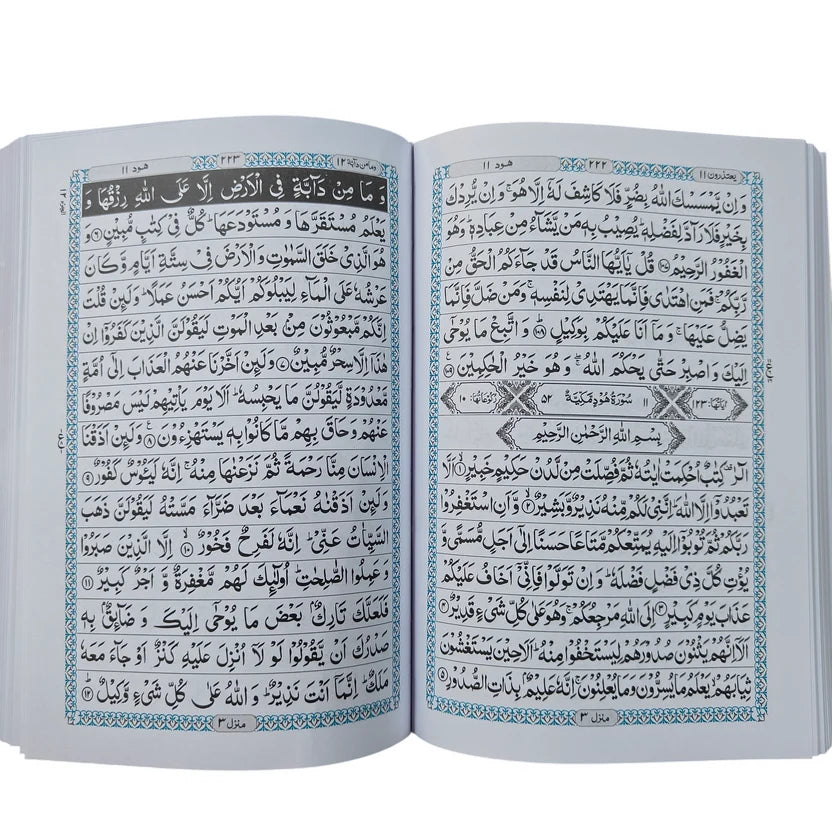 يعتذرون ١١
٢٢٢
هود ١١
وَاِنْ يَّمْسَسْكَ اللّٰهُ بِضُرٍّ فَلَا كَاشِفَ لَهٗۤ اِلَّا هُوَ ۚ وَاِنْ يُّرِدْكَ
بِخَيْرٍ فَلَا رَآدَّ لِفَضْلِهٖ ؕ يُصِيْبُ بِهٖ مَنْ يَّشَآءُ مِنْ عِبَادِهٖ ؕ وَهُوَ
الْغَفُوْرُ الرَّحِيْمُ ﴿۱۰۷﴾ قُلْ يٰۤاَيُّهَا النَّاسُ قَدْ جَآءَكُمُ الْحَقُّ مِنْ
رَّبِّكُمْ ۚ فَمَنِ اهْتَدٰى فَاِنَّمَا يَهْتَدِىْ لِنَفْسِهٖ ۚ وَمَنْ ضَلَّ فَاِنَّمَا
يَضِلُّ عَلَيْهَا ۚ وَمَاۤ اَنَا عَلَيْكُمْ بِوَكِيْلٍ ؕ ﴿۱۰۸﴾ وَاتَّبِعْ مَا يُوْحٰۤى
اِلَيْكَ وَاصْبِرْ حَتّٰى يَحْكُمَ اللّٰهُ ۖۚ وَهُوَ خَيْرُ الْحٰكِمِيْنَ ﴿۱۰۹﴾
اٰيَاتُهَا ١٢٣ ١١ سُوْرَةُ هُوْدٍ مَّكِّيَّةٌ ٥٢ رُكُوْعَاتُهَا ١٠
بِسْمِ اللّٰهِ الرَّحْمٰنِ الرَّحِيْمِ
الٓرٰ ۚ كِتٰبٌ اُحْكِمَتْ اٰيٰتُهٗ ثُمَّ فُصِّلَتْ مِنْ لَّدُنْ حَكِيْمٍ خَبِيْرٍ ۙ ﴿۱﴾ اَلَّا
تَعْبُدُوْۤا اِلَّا اللّٰهَ ؕ اِنَّنِىْ لَكُمْ مِّنْهُ نَذِيْرٌ وَّبَشِيْرٌ ۙ ﴿۲﴾ وَّاَنِ اسْتَغْفِرُوْا
رَبَّكُمْ ثُمَّ تُوْبُوْۤا اِلَيْهِ يُمَتِّعْكُمْ مَّتَاعًا حَسَنًا اِلٰۤى اَجَلٍ مُّسَمًّى وَّ
يُؤْتِ كُلَّ ذِىْ فَضْلٍ فَضْلَهٗ ؕ وَاِنْ تَوَلَّوْا فَاِنِّىْۤ اَخَافُ عَلَيْكُمْ
عَذَابَ يَوْمٍ كَبِيْرٍ ﴿۳﴾ اِلَى اللّٰهِ مَرْجِعُكُمْ ۚ وَهُوَ عَلٰى كُلِّ شَىْءٍ قَدِيْرٌ ﴿۴﴾
اَلَاۤ اِنَّهُمْ يَثْنُوْنَ صُدُوْرَهُمْ لِيَسْتَخْفُوْا مِنْهُ ؕ اَلَا حِيْنَ يَسْتَغْشُوْنَ
ثِيَابَهُمْ ۙ يَعْلَمُ مَا يُسِرُّوْنَ وَمَا يُعْلِنُوْنَ ۚ اِنَّهٗ عَلِيْمٌۢ بِذَاتِ الصُّدُوْرِ ﴿۵﴾
منزل ٣
ومامن دآبة ١٢
٢٢٣
هود ١١
وَ مَا مِنْ دَآبَّةٍ فِى الْاَرْضِ اِلَّا عَلَى اللّٰهِ رِزْقُهَا وَ
يَعْلَمُ مُسْتَقَرَّهَا وَ مُسْتَوْدَعَهَا ؕ كُلٌّ فِىْ كِتٰبٍ مُّبِيْنٍ ﴿۶﴾ وَ
هُوَ الَّذِىْ خَلَقَ السَّمٰوٰتِ وَالْاَرْضَ فِىْ سِتَّةِ اَيَّامٍ وَّكَانَ
عَرْشُهٗ عَلَى الْمَآءِ لِيَبْلُوَكُمْ اَيُّكُمْ اَحْسَنُ عَمَلًا ؕ وَلَئِنْ قُلْتَ
اِنَّكُمْ مَّبْعُوْثُوْنَ مِنْۢ بَعْدِ الْمَوْتِ لَيَقُوْلَنَّ الَّذِيْنَ كَفَرُوْۤا اِنْ
هٰذَاۤ اِلَّا سِحْرٌ مُّبِيْنٌ ﴿۷﴾ وَلَئِنْ اَخَّرْنَا عَنْهُمُ الْعَذَابَ اِلٰۤى اُمَّةٍ
مَّعْدُوْدَةٍ لَّيَقُوْلُنَّ مَا يَحْبِسُهٗ ؕ اَلَا يَوْمَ يَاْتِيْهِمْ لَيْسَ مَصْرُوْفًا
عَنْهُمْ وَحَاقَ بِهِمْ مَّا كَانُوْا بِهٖ يَسْتَهْزِءُوْنَ ﴿۸﴾ وَلَئِنْ اَذَقْنَا
الْاِنْسَانَ مِنَّا رَحْمَةً ثُمَّ نَزَعْنٰهَا مِنْهُ ۚ اِنَّهٗ لَيَئُوْسٌ كَفُوْرٌ ﴿۹﴾
وَلَئِنْ اَذَقْنٰهُ نَعْمَآءَ بَعْدَ ضَرَّآءَ مَسَّتْهُ لَيَقُوْلَنَّ ذَهَبَ
السَّيِّاٰتُ عَنِّىْ ؕ اِنَّهٗ لَفَرِحٌ فَخُوْرٌ ۙ ﴿۱۰﴾ اِلَّا الَّذِيْنَ صَبَرُوْا
وَ عَمِلُوا الصّٰلِحٰتِ ؕ اُولٰٓئِكَ لَهُمْ مَّغْفِرَةٌ وَّ اَجْرٌ كَبِيْرٌ ﴿۱۱﴾
فَلَعَلَّكَ تَارِكٌۢ بَعْضَ مَا يُوْحٰۤى اِلَيْكَ وَ ضَآئِقٌۢ بِهٖ
صَدْرُكَ اَنْ يَّقُوْلُوْا لَوْ لَاۤ اُنْزِلَ عَلَيْهِ كَنْزٌ اَوْ جَآءَ مَعَهٗ
مَلَكٌ ؕ اِنَّمَاۤ اَنْتَ نَذِيْرٌ ؕ وَ اللّٰهُ عَلٰى كُلِّ شَىْءٍ وَّكِيْلٌ ؕ ﴿۱۲﴾
منزل ٣